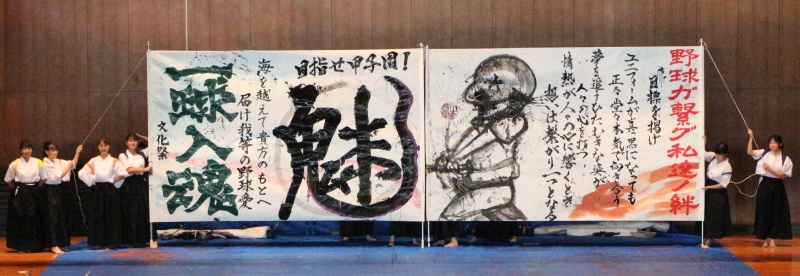 野球ガ繋グ私達ノ絆
さあ目標を掲げ
ユニフォームが真っ黒になっても
正々堂々本気で向き合う
夢を追うひたむきな姿が
人々の心を打つ
情熱が人々の心に響くとき
想いは繋がり一つとなる
目指せ甲子園!
魅
海を越えて貴方のもとへ
届け我等の野球愛
一球入魂
文化祭